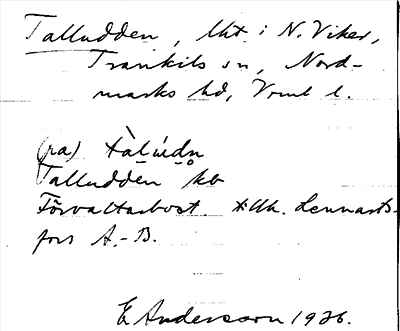 Talludden, lht i N. Viker,
Trankils sn, Nord-
marks hd, Vrml l.
(ra) tàlúdn
Talludden kb
Förvaltarbost. tillh. Lennarts-
fors A.-B.
E Andersson 1926.